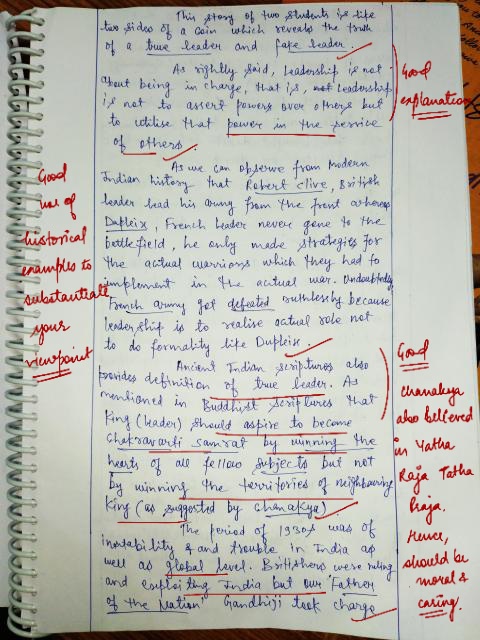 This story of two students is like
two sides of a coin which reveals the truth
of a true leader and fake leader.
As rightly said, leadership is not
about being in charge, that is, not leadership
is not to assert powers over others but
to utilise that power in the service
of others.
As we can observe from modern
Indian history that Robert Clive, British
leader lead his army from the front whereas
Dupleix, French leader never gone to the
battlefield, he only made strategies for
the actual warriors which they had to
implement in the actual war. Undoubtedly
French army got defeated ruthlessly because
leadership is to realise actual role not
to do formality like Dupleix.
Ancient Indian scriptures also
provides definition of true leader. As
mentioned in Buddhist scriptures that
King (leader) should aspire to become
Chakravarti samrat by winning the
hearts of all fellow subjects but not
by winning the territories of neighbouring
King (as suggested by Chanakya)
The period of 1930s was of
instability & and trouble in India as
well as global level. Britishers were ruling
and exploiting India but our 'Father
of the Nation' Gandhiji took charge
Good
use of
historical
examples to
substantiate
your
viewpoint
Good
explanation
Good
Chanakya
also believed
in Yatha
Raja Tatha
Praja.
Hence,
should be
moral &
caring.